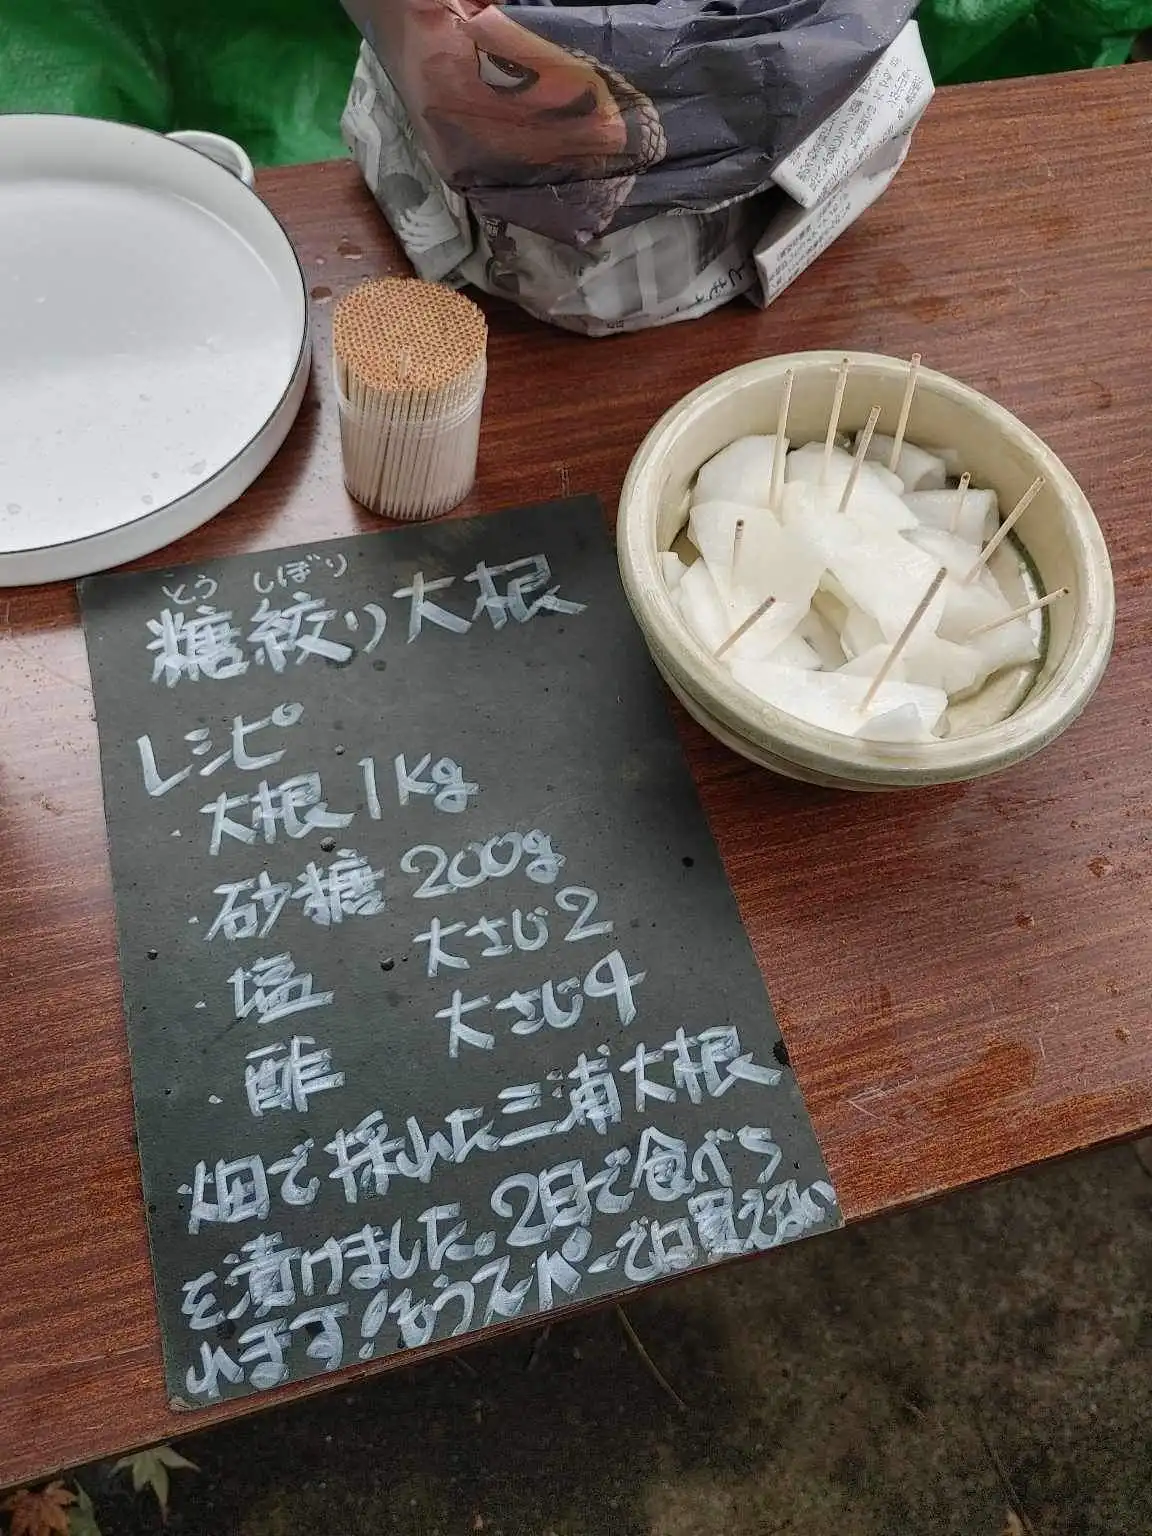 とう しぼり
糖絞り大根
レシピ
・大根 1kg
・砂糖 200g
・塩 大さじ2
・酢 大さじ4
畑で採れた三浦大根
を漬けました。2日で食べら
れます!もうスーパーでは買えない